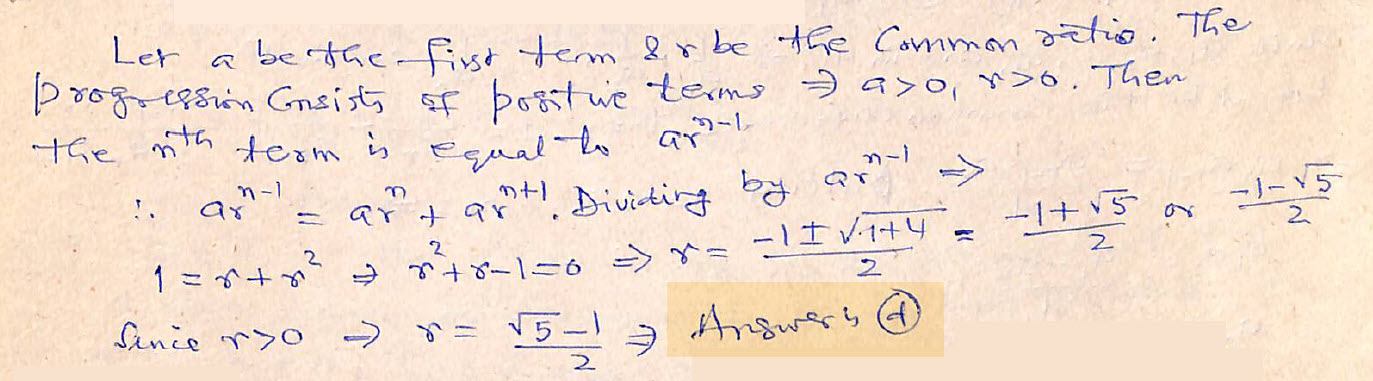 Let a be the first term & r be the Common ratio. The
progression Consists of positive terms ⇒ a>0, r>0. Then
the nth term is equal to ar^{n-1}
∴ ar^{n-1} = ar^n + ar^{n+1}. Dividing by ar^{n-1} ⇒
1 = r + r^2 ⇒ r^2 + r - 1 = 0 ⇒ r = \frac{-1 ± √{1+4}}{2} = \frac{-1+√5}{2} or \frac{-1-√5}{2}
Since r>0 ⇒ r = \frac{√5-1}{2} ⇒ Answer is ⓓ